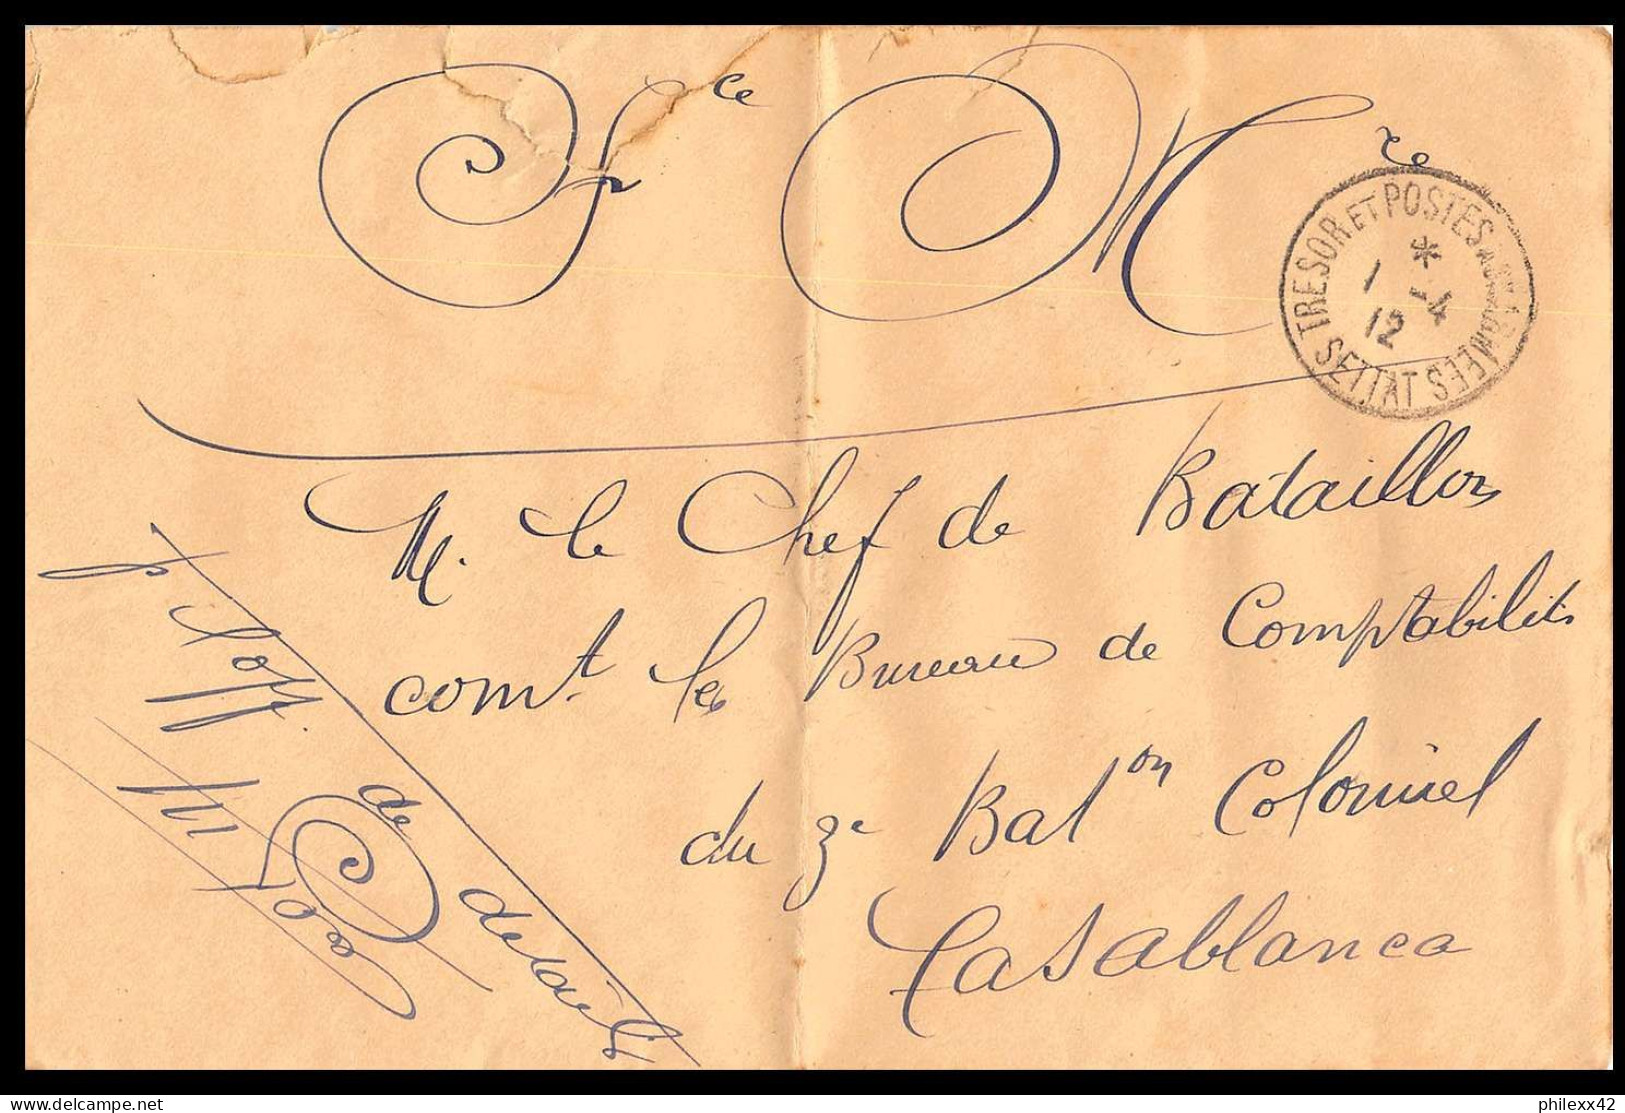 Sce Mre
TRESOR ET POSTES AUX ARMEES
*
1 -4
12
SETTAT
M. le Chef de Bataillon
comt. le Bureau de Comptabilité
du 3e Baton Colonial
Casablanca
l'off.
de détails